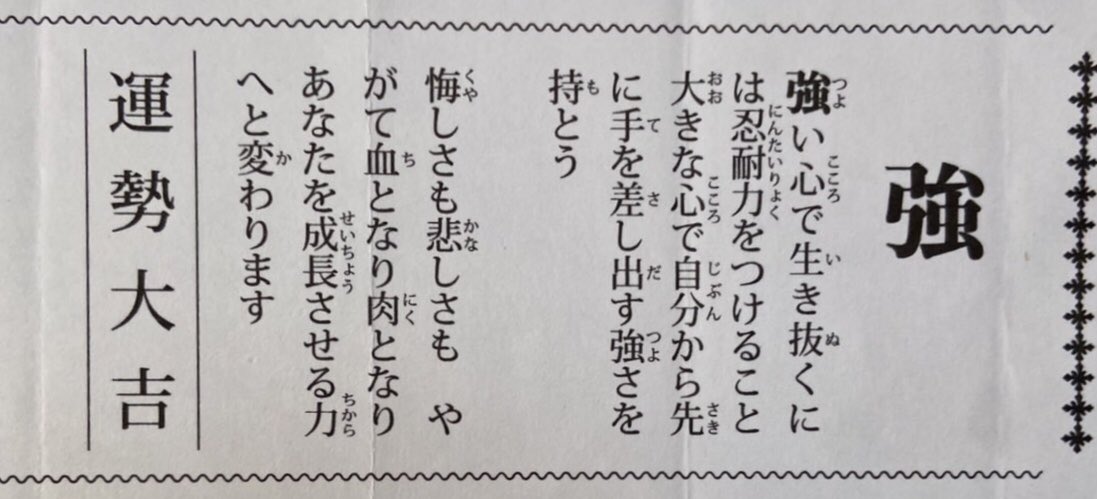 強
強い心で生き抜くに
は忍耐力をつけること
大きな心で自分から先
に手を差し出す強さを
持とう
悔しさも悲しさも　や
がて血となり肉となり
あなたを成長させる力
へと変わります
運勢大吉